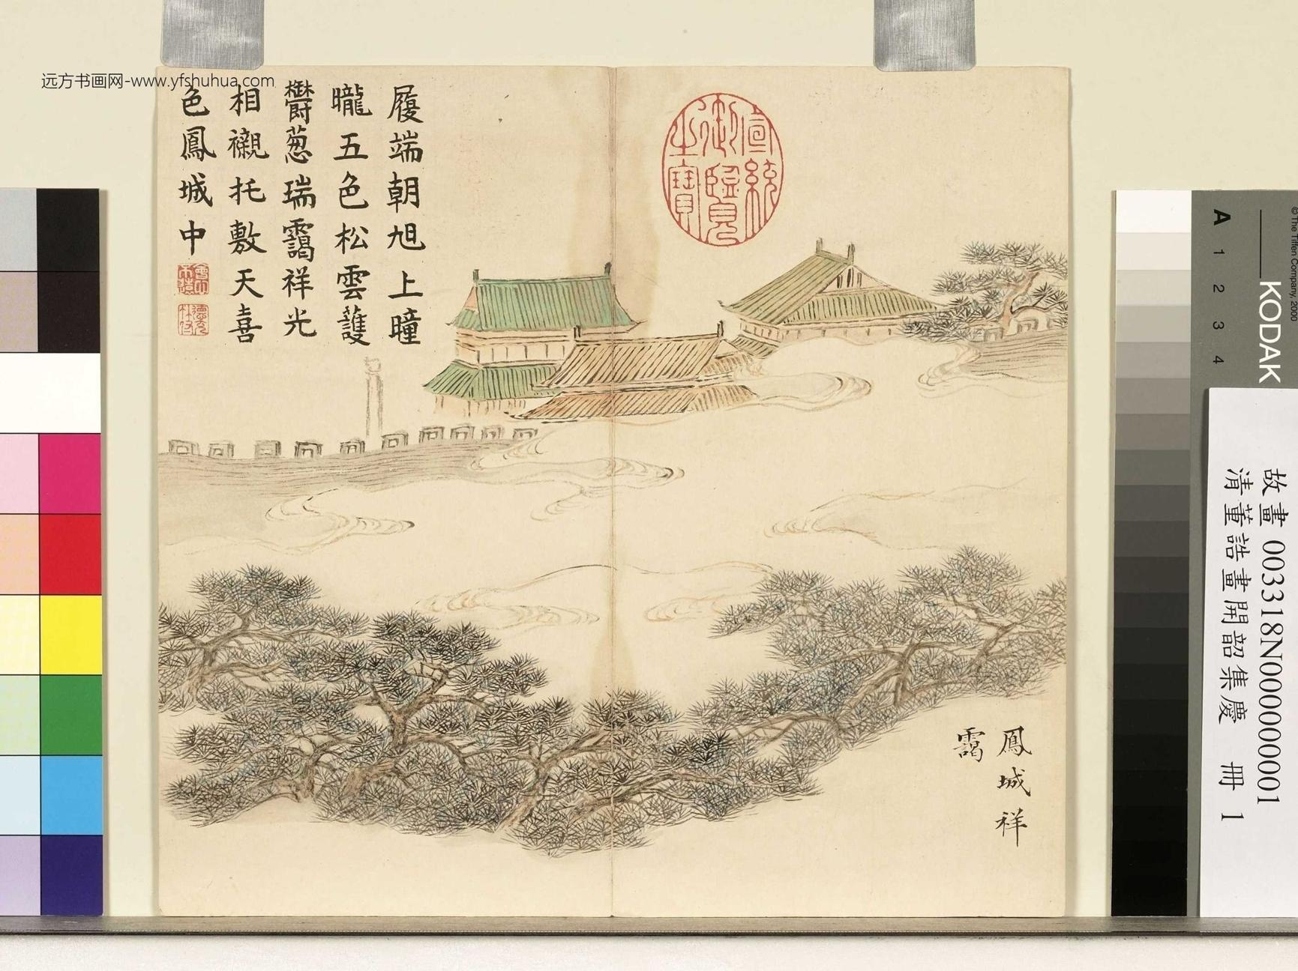 远方书画网-www.yfshuhua.com
履端朝旭上曈
曨五色松雲護
鬱葱瑞靄祥光
相襯托敷天喜
色鳳城中
宣統
御覽
之寶
鳳城祥
靄
故畫 003318N000000001
清董誥畫開韶集慶 冊 1
KODAK
© The Tiffen Company, 2000
A 1 2 3 4